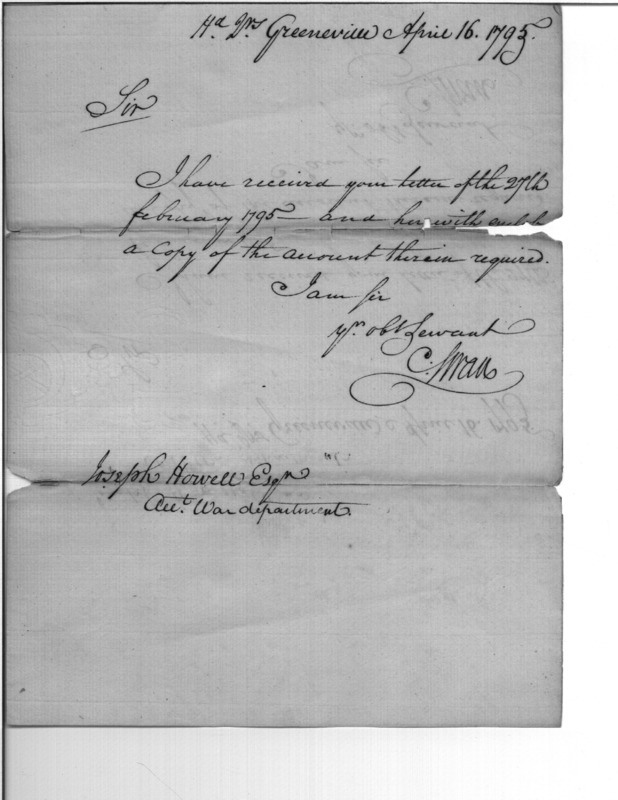 Hd. Qrs Greeneville April 16. 1795.
Sir
I have received your letter of the 27th
february 1795 — and herewith
a copy of the account therein required.
I am Sir
yr. obt Servant
C: Swan
Joseph Howell Esqr
Acct. War department.